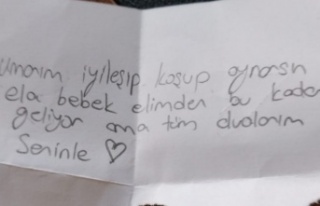 Umarım iyileşip koşup oynarsın
ela bebek elimden bu kadar
geliyor ama tüm dualarım
Seninle ♡